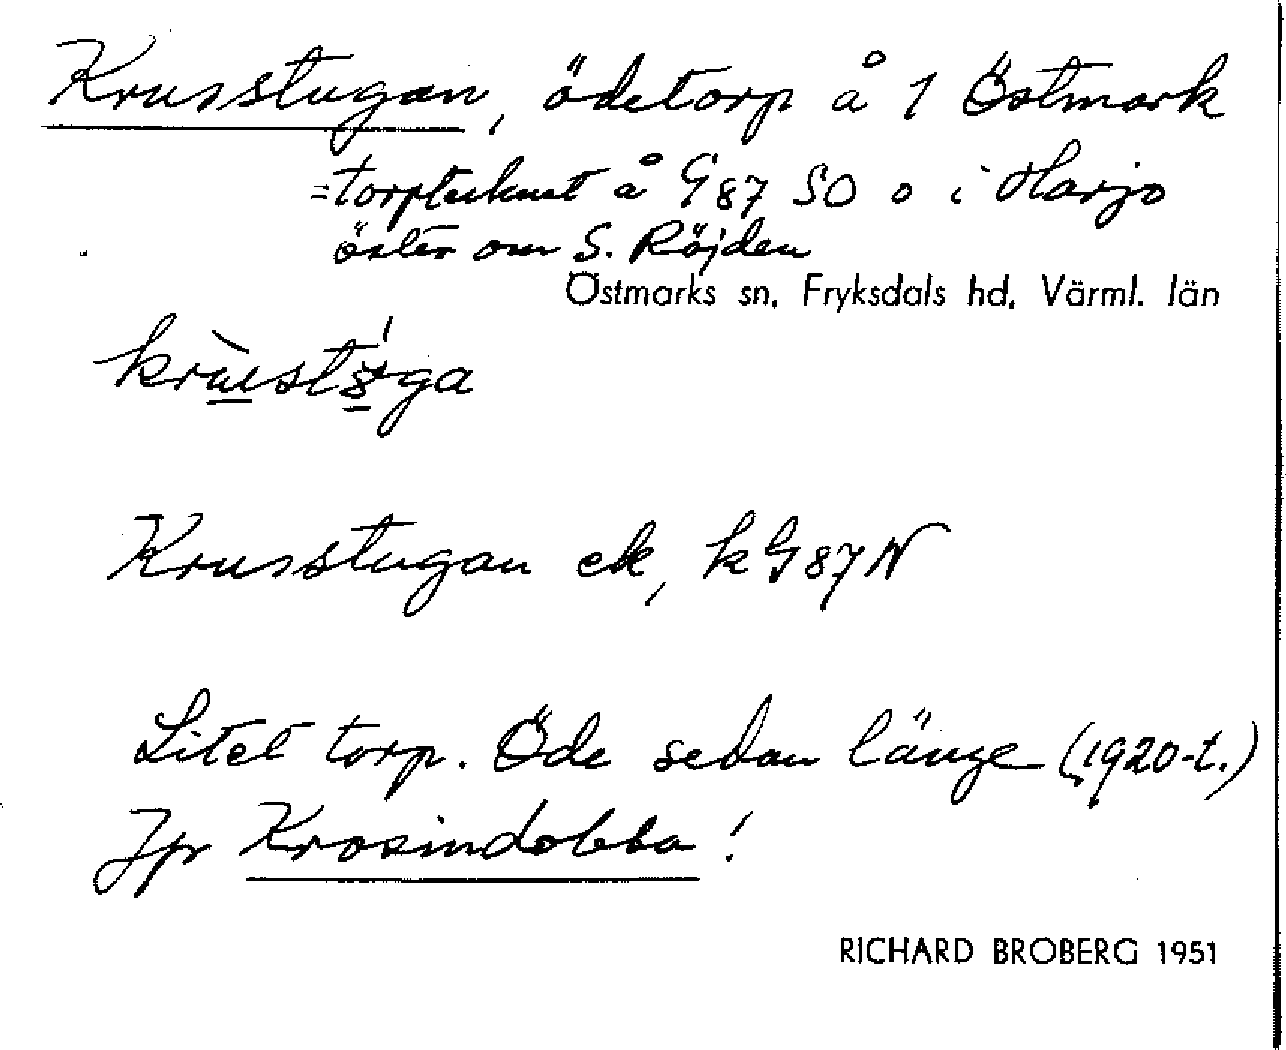 Krusstugan, ödetorp å 1 Östmark
=torptecknet å G87 SO o i Harjo
öster om S. Röjden
Östmarks sn, Fryksdals hd, Värml. län
Krusstugan ek, k G87N
Litet torp. Öde sedan länge (1920-t.)
Jfr Krosindobba!
RICHARD BROBERG 1951